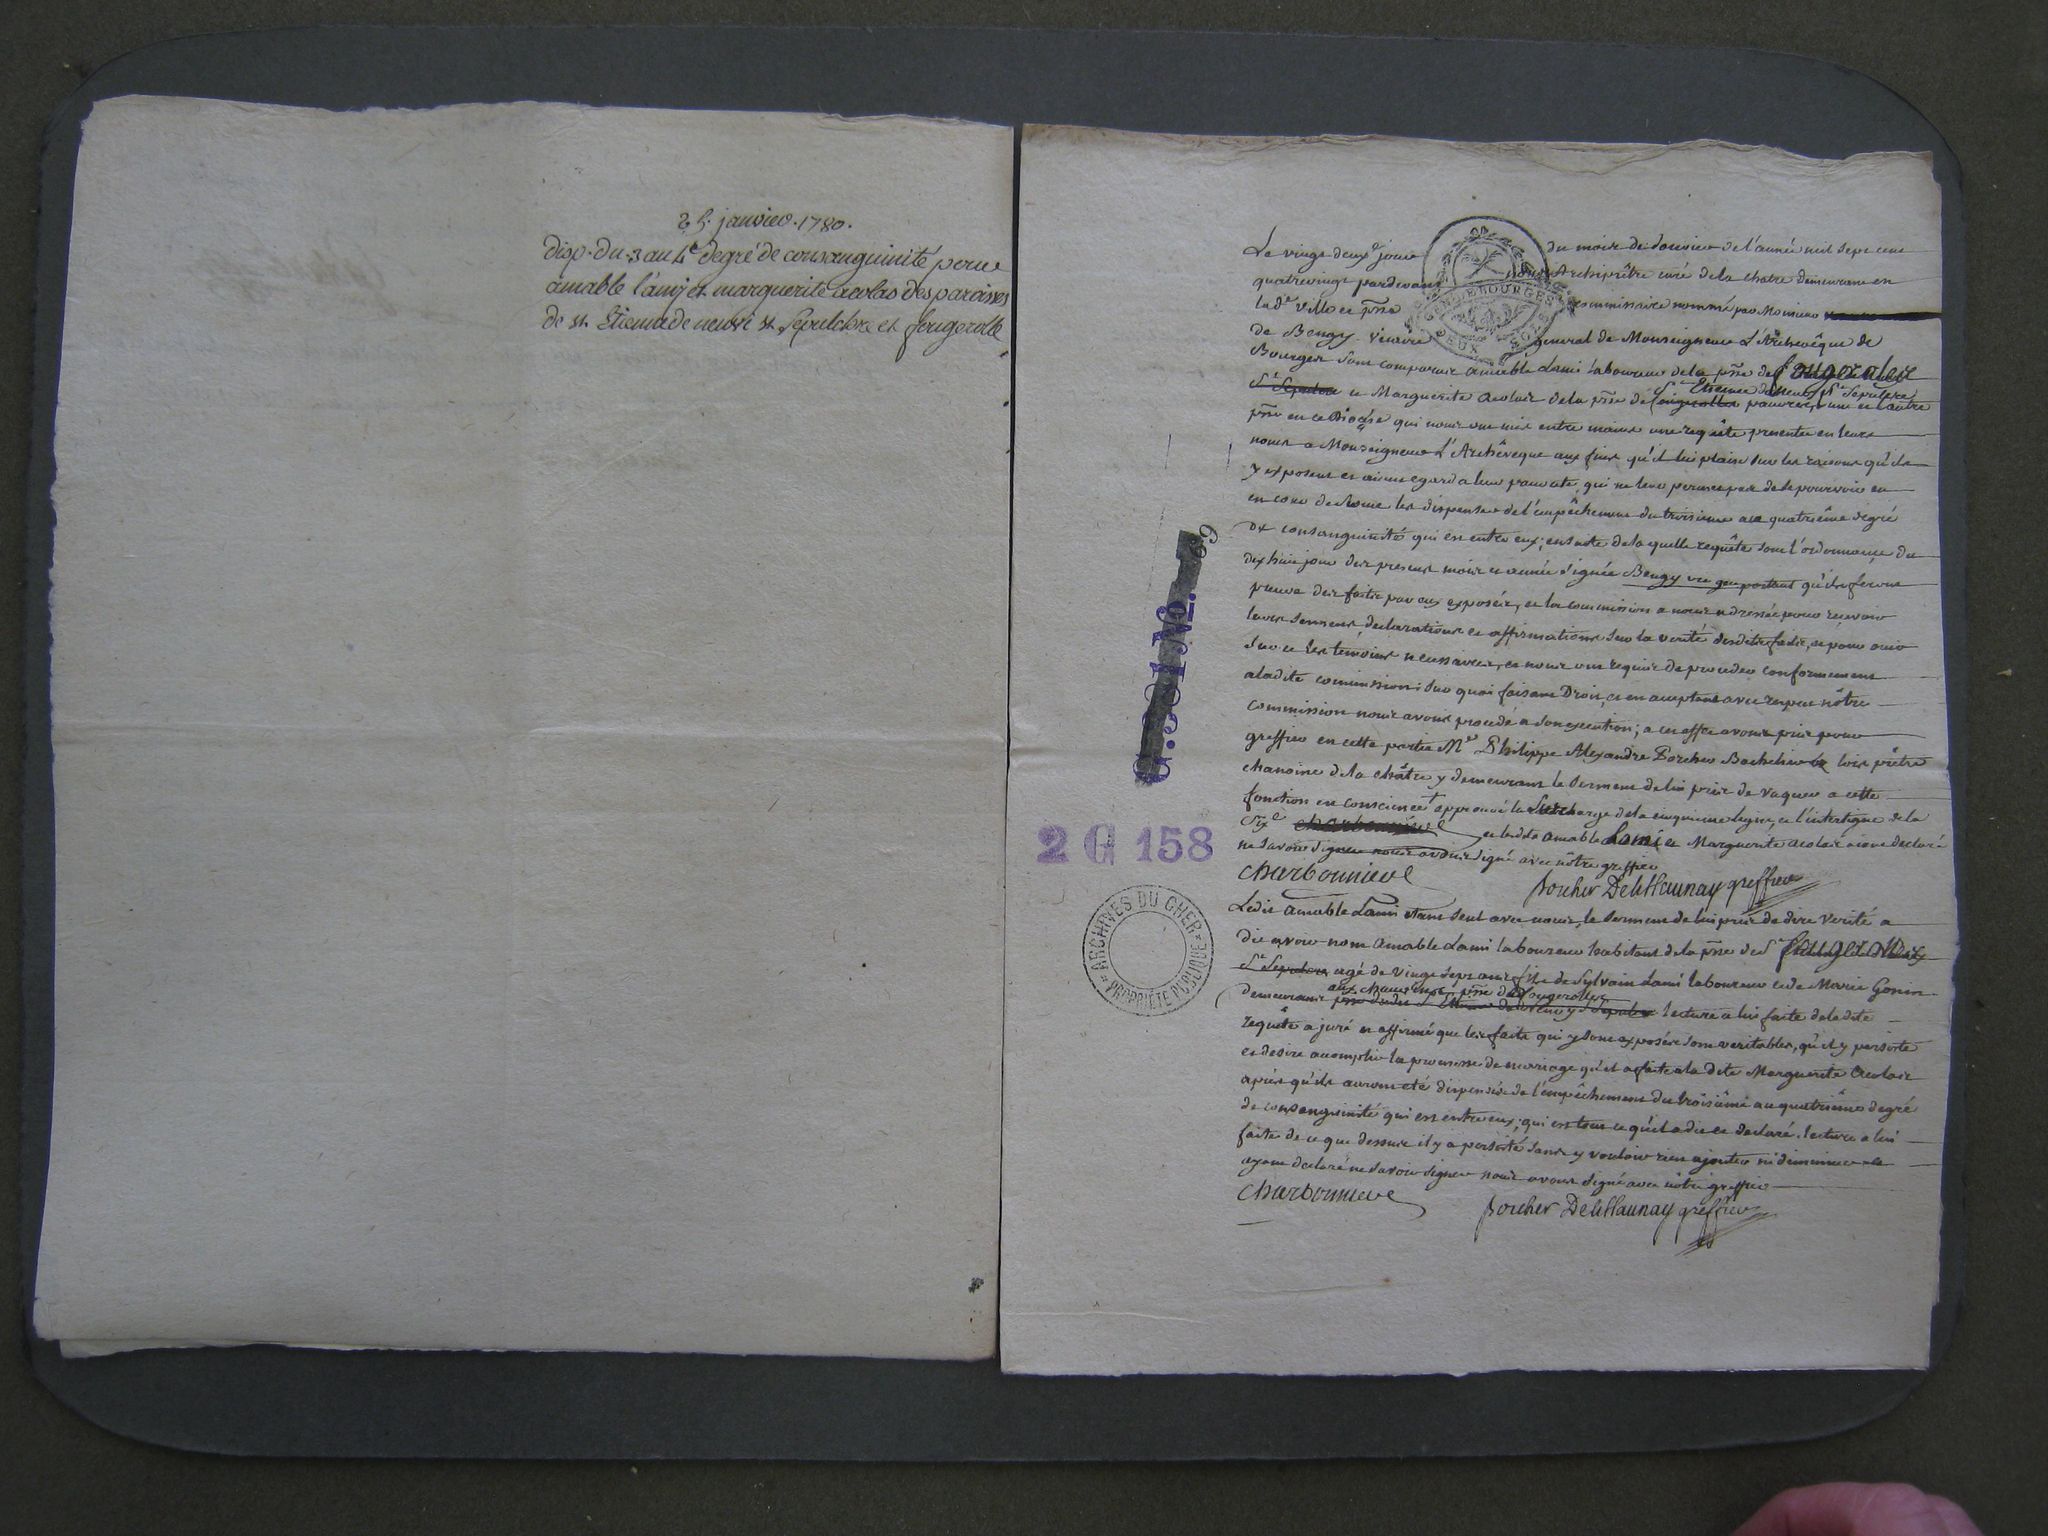 25. janvier. 1780.
disp. du. 3 au 4e degré de consanguinité pour
amable l'amy et marguerite acolas des paroisses
de st. Etienne de neuvi st. Sepulchre et fougerolle
Le vingt deuxe jour du mois de Janvier de l'année mil sept cent
quatrevingt pardevant nous Archiprêtre curé de la chatre demeurant en
la de ville et psse commissaire nommé par Monsieur
de Bengy vicaire general de Monseigneur L'Archevêque de
Bourges sont comparus amable Lami laboureur de la psse de fougerolles
St Etienne de neuvy St Sepulcre
St Sepulcre et Marguerite Acolas de la psse de fougerolles pauvres, l'un et l'autre
psse en ce Diocèse qui nous ont mis entre mains une requête presentée en leurs
noms a Monseigneur L'Archevêque aux fins qu'il lui plaise sur les raisons qu'ils
y exposent et aiant egard a leur pauvreté, qui ne leur permet pas de se pourvoir en
en cour de Rome les dispenser de l'empêchement du troisieme au quatrième degré
de consanguinité qui est entre eux; ensuite de la quelle requête sont l'ordonnance du
dix huit jour des present mois et année signée Bengy vic gen portant qu'ils feront
preuve des faits par eux exposés, et la commission a nous adressée pour recevoir
leurs serment, declarations et affirmations sur la verité desdits faits, et pour ouir
sur ce les temoins necessaires, et nous ont requis de proceder conformement
a ladite commission: sur quoi faisant Droit, et en acceptant avec respect nôtre
commission nous avons procedé a son execution; a cet effet avons pris pour
greffier en cette partie Mre Philippe Alexandre Porcher Bachelier es loix prêtre
chanoine de la châtre y demeurant le serment de lui pris de vaquer a cette
fonction en conscience approuvé la surcharge de la cinquieme ligne, et l'interligne de la
sixe charbonnierel et ledit amable Lami et Marguerite Acolas aiant declaré
ne savoir signer nous avons signé avec nôtre greffier
charbonnierel Porcher DelisHaunay greffier
Ledit amable Lami etant seul avec nous, le serment de lui pris de dire verité a
dit avoir nom amable Lami laboureur habitant de la psse de St fougerolles
St Sepulcre agé de vingt sept ans fils de Sylvain Lami laboureur et de Marie Gonin
aux chaumes psse de fougerolles
demeurant psse dudit St Etienne de neuvy St Sepulcre lecture a lui faite de ladite
requête a juré et affirmé que les faits qui y sont exposés sont veritables, qu'il y persiste
et desire accomplir la promesse de mariage qu'il a faite a la dite Marguerite Acolas
après qu'ils auront eté dispensés de l'empêchement du troisième au quatrième degré
de consanguinité qui est entre eux; qui est tout ce qu'il a dit et declaré. lecture a lui
faite de ce que dessus il y a persisté sans y vouloir rien ajouter ni diminuer et
ayant declaré ne savoir signer nous avons signé avec nôtre greffier
charbonnierel Porcher DelisHaunay greffier
2 G 158
ARCHIVES DU CHER
PROPRIÉTÉ PUBLIQUE
GEN. DE BOURGES
DEUX SOLS